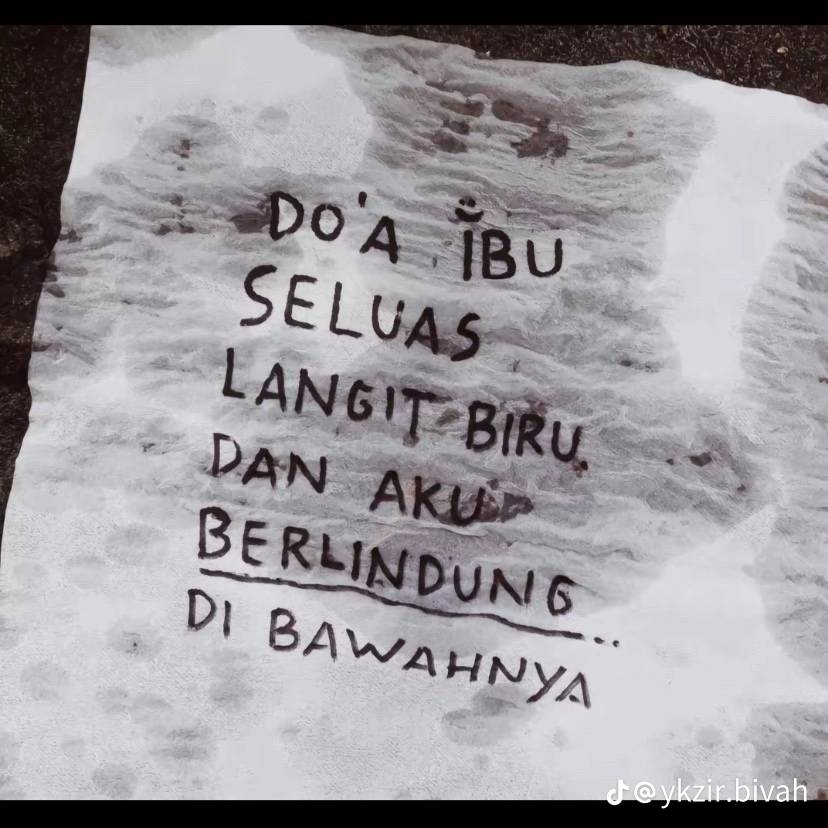 DO'A IBU
SELUAS
LANGIT BIRU
DAN AKU
BERLINDUNG..
DI BAWAHNYA
@ykzir.bivah